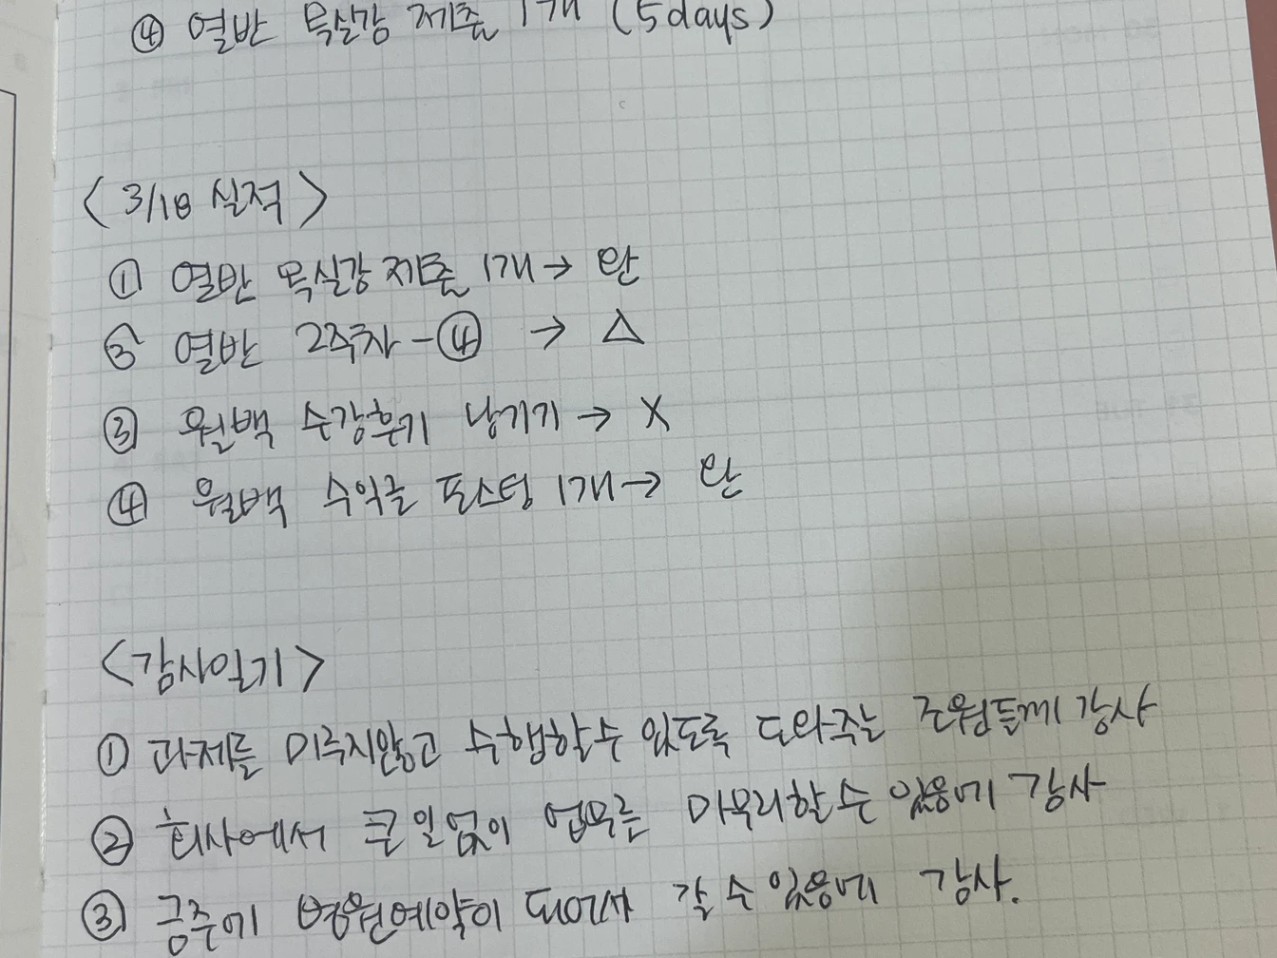 ④ 열반 목실감 제출 1개 (5days)
< 3/18 실적 >
① 열반 목실감 제출 1개 → 완
② 열반 2주차 - ④ → △
③ 월백 수강후기 남기기 → X
④ 월백 수익글 포스팅 1개 → 완
<감사일기>
① 과제를 미루지않고 수행할수 있도록 도와주는 조원들께 감사
② 회사에서 큰일없이 업무를 마무리할 수 있음에 감사
③ 금주에 병원예약이 되어서 갈 수 있음에 감사.